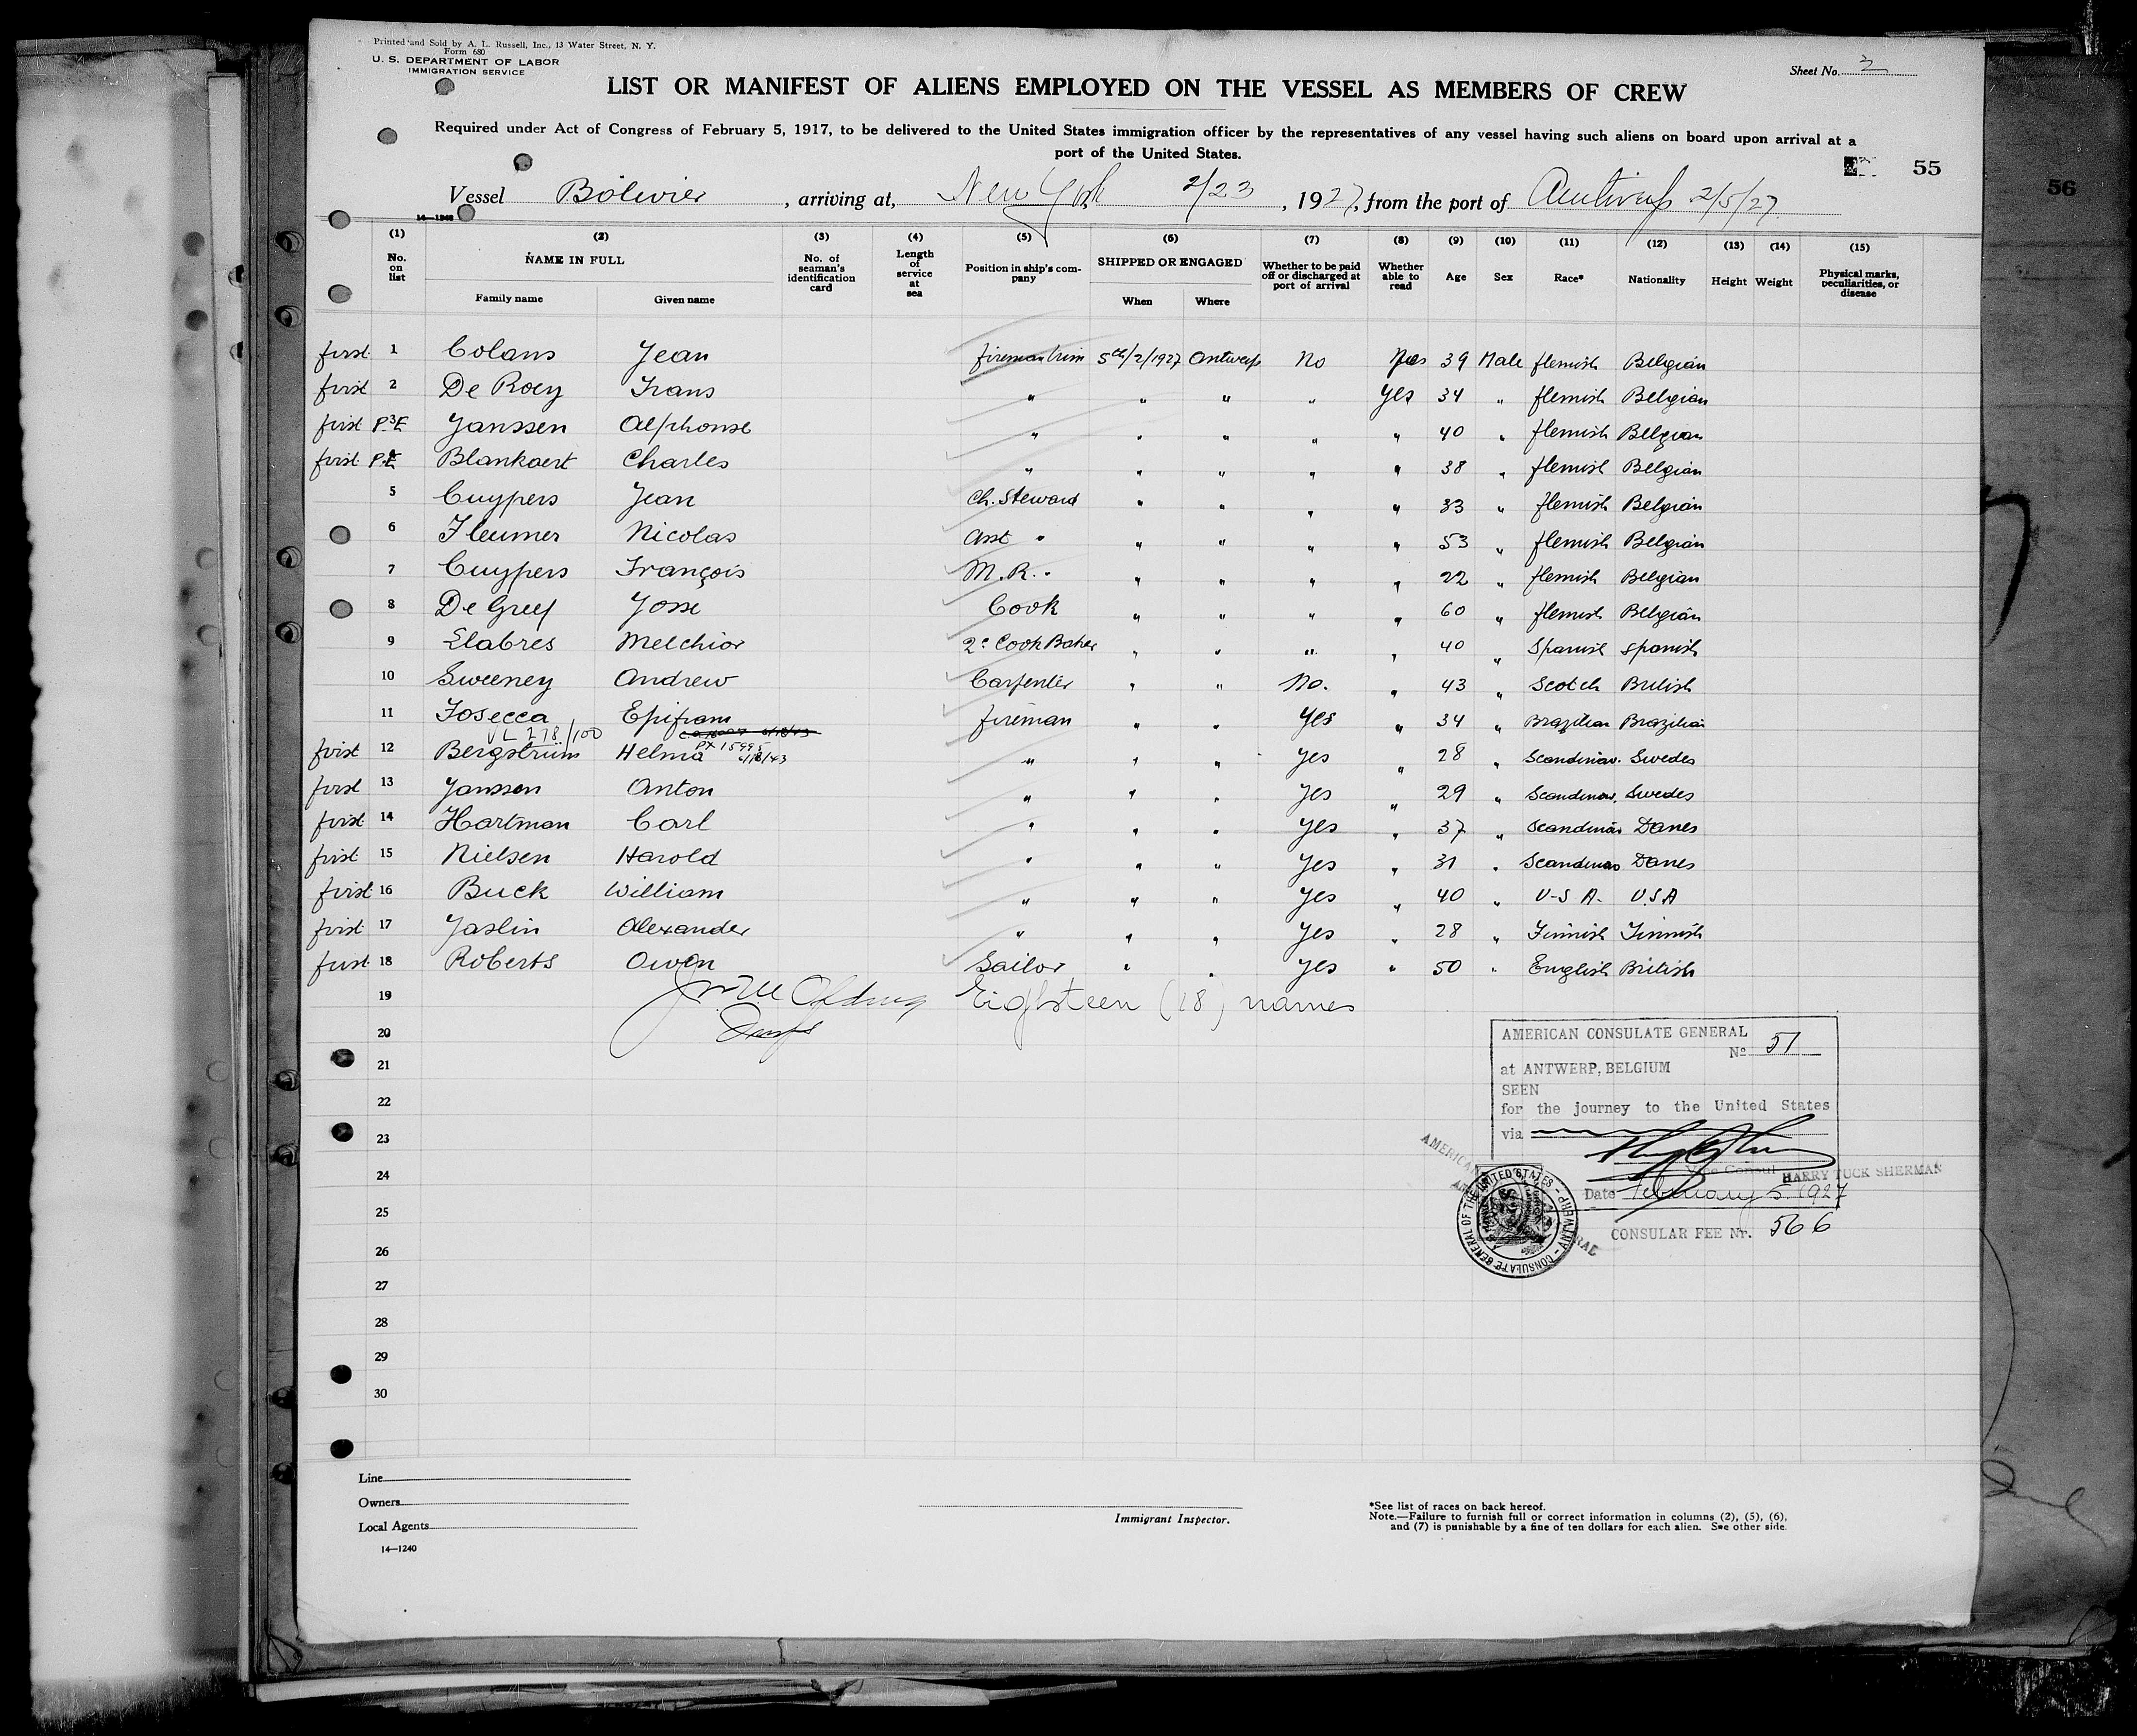 Printed and Sold by A. L. Russell, Inc., 13 Water Street, N. Y.
Form 680
U. S. DEPARTMENT OF LABOR
IMMIGRATION SERVICE
Sheet No. 2
LIST OR MANIFEST OF ALIENS EMPLOYED ON THE VESSEL AS MEMBERS OF CREW
Required under Act of Congress of February 5, 1917, to be delivered to the United States immigration officer by the representatives of any vessel having such aliens on board upon arrival at a
port of the United States.
55
56
Vessel Bolivier, arriving at, New York 2/23, 1927, from the port of Antwerp 2/5/27
14—1240
(1) (2) (3) (4) (5) (6) (7) (8) (9) (10) (11) (12) (13) (14) (15)
No. on list NAME IN FULL Family name Given name No. of seaman's identification card Length of service at sea Position in ship's company SHIPPED OR ENGAGED When Where Whether to be paid off or discharged at port of arrival Whether able to read Age Sex Race* Nationality Height Weight Physical marks, peculiarities, or disease
first 1 Colans Jean fireman trim 5th/2/1927 Antwerp No Yes 39 Male flemish Belgian
first 2 De Roey Frans " " " " Yes 34 " flemish Belgian
first P.E 3 Janssen Alphonse " " " " " 40 " flemish Belgian
first P.E 4 Blankaert Charles " " " " " 38 " flemish Belgian
5 Cuypers Jean Ch. Steward " " " " 33 " flemish Belgian
6 Fleumer Nicolas Asst " " " " " 53 " flemish Belgian
7 Cuypers François M.R. " " " " " 22 " flemish Belgian
8 De Greef Josse Cook " " " " 60 " flemish Belgian
9 Llabres Melchior 2e Cook Baker " " " " 40 " Spanish Spanish
10 Sweeney Andrew Carpenter " " No. " 43 " Scotch British
11 Fosecca Epifram fireman " " Yes " 34 " Brazilian Brazilian
VL 278/100
PX 15995 6/18/43
first 12 Bergström Helma " " " Yes " 28 " Scandinav. Swedes
first 13 Jansson Anton " " " Yes " 29 " Scandinav. Swedes
first 14 Hartman Carl " " " Yes " 37 " Scandinav Danes
first 15 Nielsen Harold " " " Yes " 31 " Scandinav Danes
first 16 Buck William " " " Yes " 40 " U-S A. U.S.A
first 17 Jaslin Alexander " " " Yes " 28 " Finnish Finnish
first 18 Roberts Owen Sailor " " Yes " 50 " English British
19 Eighteen (18) names
20
21
22
23
24
25
26
27
28
29
30
AMERICAN CONSULATE GENERAL
No 51
at ANTWERP, BELGIUM
SEEN
for the journey to the United States
via
Vice Consul HARRY TUCK SHERMAN
Date February 5. 1927
CONSULAR FEE Nr. 566
Line
Owners
Local Agents
14—1240
Immigrant Inspector.
*See list of races on back hereof.
Note.—Failure to furnish full or correct information in columns (2), (5), (6),
and (7) is punishable by a fine of ten dollars for each alien. See other side.